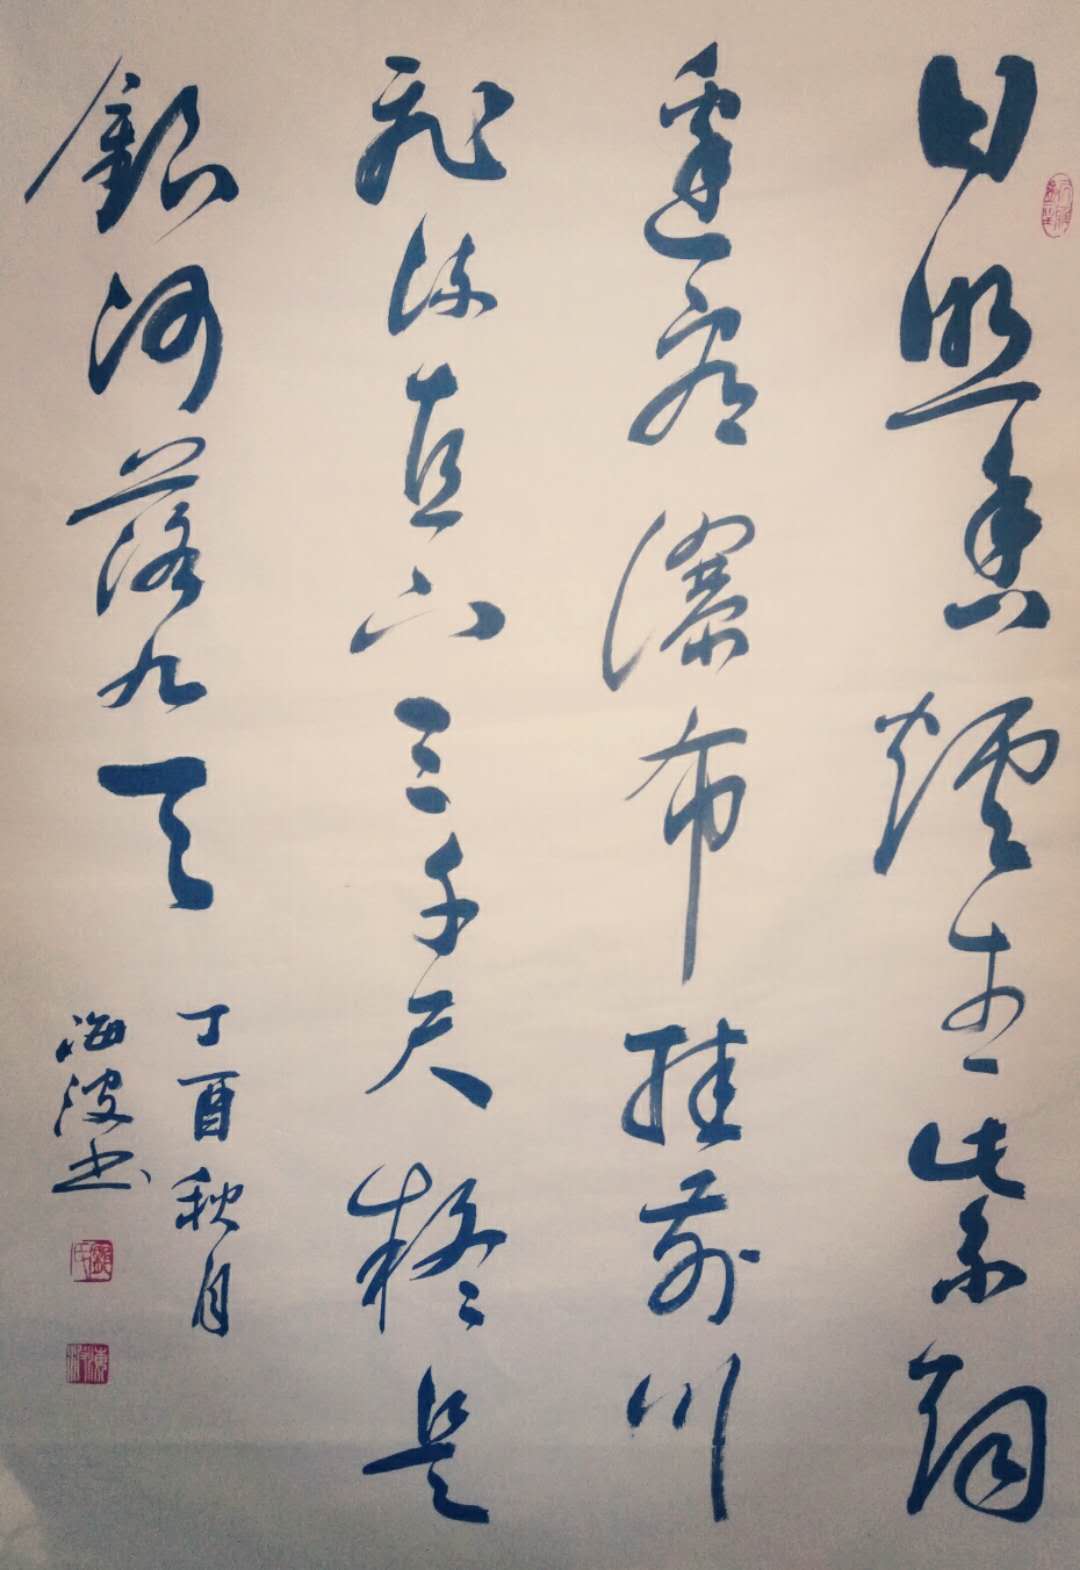 日照香爐生紫烟
遥看瀑布挂前川
飛流直下三千尺疑是
銀河落九天
丁酉秋月
海波书